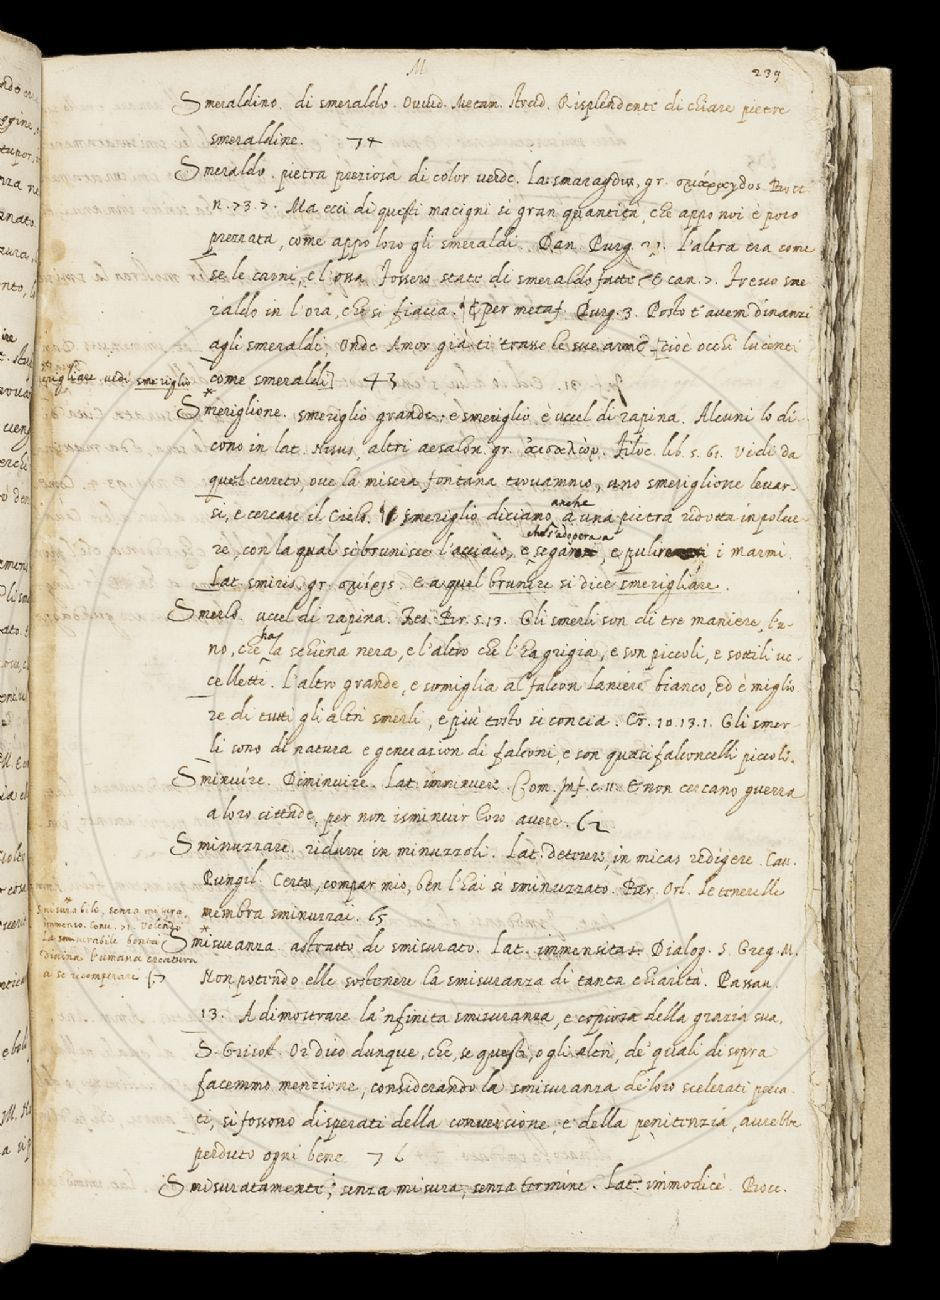 M
239
Smeraldino. di smeraldo. Ovvid. Metam. Strad. Risplendente di chiare pietre
smeraldine. 74
Smeraldo. pietra preziosa di color verde. Lat. smaragdus, gr. σμάραγδος. Bocc.
n. 73. 7. Ma ecci di questi macigni si gran quantita, che appo noi è poco
prezzata, come appo loro gli smeraldi. Dan. Purg. 29. L'altra era come
se le carni, e l'ossa fossero state di smeraldo fatte. E can. 7. Fresco sme
raldo in l'ora, che si fiacca. E per metaf. Purg. 3. Posto t'avem dinanzi
agli smeraldi, Onde Amor già ti trasse le sue armi [cioè occhi lucenti
come smeraldi] 43
smerigliare vedi smeriglio
Smeriglione. smeriglio grande: e smeriglio è uccel di rapina. Alcuni lo di-
cono in lat. Nisus, altri aesalon. gr. Filoc. lib. 5. 61. Vidi da
quel cerreto, ove la misera fontana trovammo, uno smeriglione levar-
si, e cercare il Cielo. smeriglio diciamo anche a una pietra ridotta in polve-
re, con la qual si brunisce l'acciaio, e che s'adopera a segare, e pulire i marmi.
Lat. smiris, gr. σμίρις. e a quel brunire si dice smerigliare.
Smerlo. uccel di rapina. Tes. Br. 5. 13. Gli smerli son di tre maniere, l'u-
no, che ha la schiena nera, e l'altro che l'ha grigia, e son piccoli, e sottili uc-
celletti. L'altro grande, e somiglia al falcon laniere bianco, ed è miglio
re di tutti gli altri smerli, e più tosto si concia. Cr. 10. 13. 1. Gli smer-
li sono di natura e generazion di falconi, e son quasi falconcelli piccoli.
Sminuire. Diminuire. Lat. imminuere. Com. Inf. c. 11. E non cercano guerra
a loro cittade, per non isminuir loro avere. 62
Sminuzzare. ridurre in minuzzoli. Lat. deterere, in micas redigere. Cav.
Pungil. Certo, compar mio, ben l'hai si sminuzzato. Par. Orl. Le tenerelle
membra sminuzzai. 65
Smisurabile, senza misura,
immenso. Conv. 71. Volendo
la smisurabile bontà
divina l'umana creatura
a se ricomperare
Smisuranza. astratto di smisurato. Lat. immensitas. Dialog. S. Greg. M.
Non potendo elle sostenere la smisuranza di tanta chiarità. Passav.
13. A dimostrare la 'nfinita smisuranza, e copiosa della grazia sua,
S. Grisost. Or dico dunque, che, se questi, o gli altri, de' quali di sopra
facemmo menzione, considerando la smisuranza de' loro scelerati pecca-
ti, si fossono disperati della conversione, e della penitenzia, avrebbe
perduto ogni bene. 76
Smisuratamente: senza misura, senza termine. Lat. immodicè. Bocc.